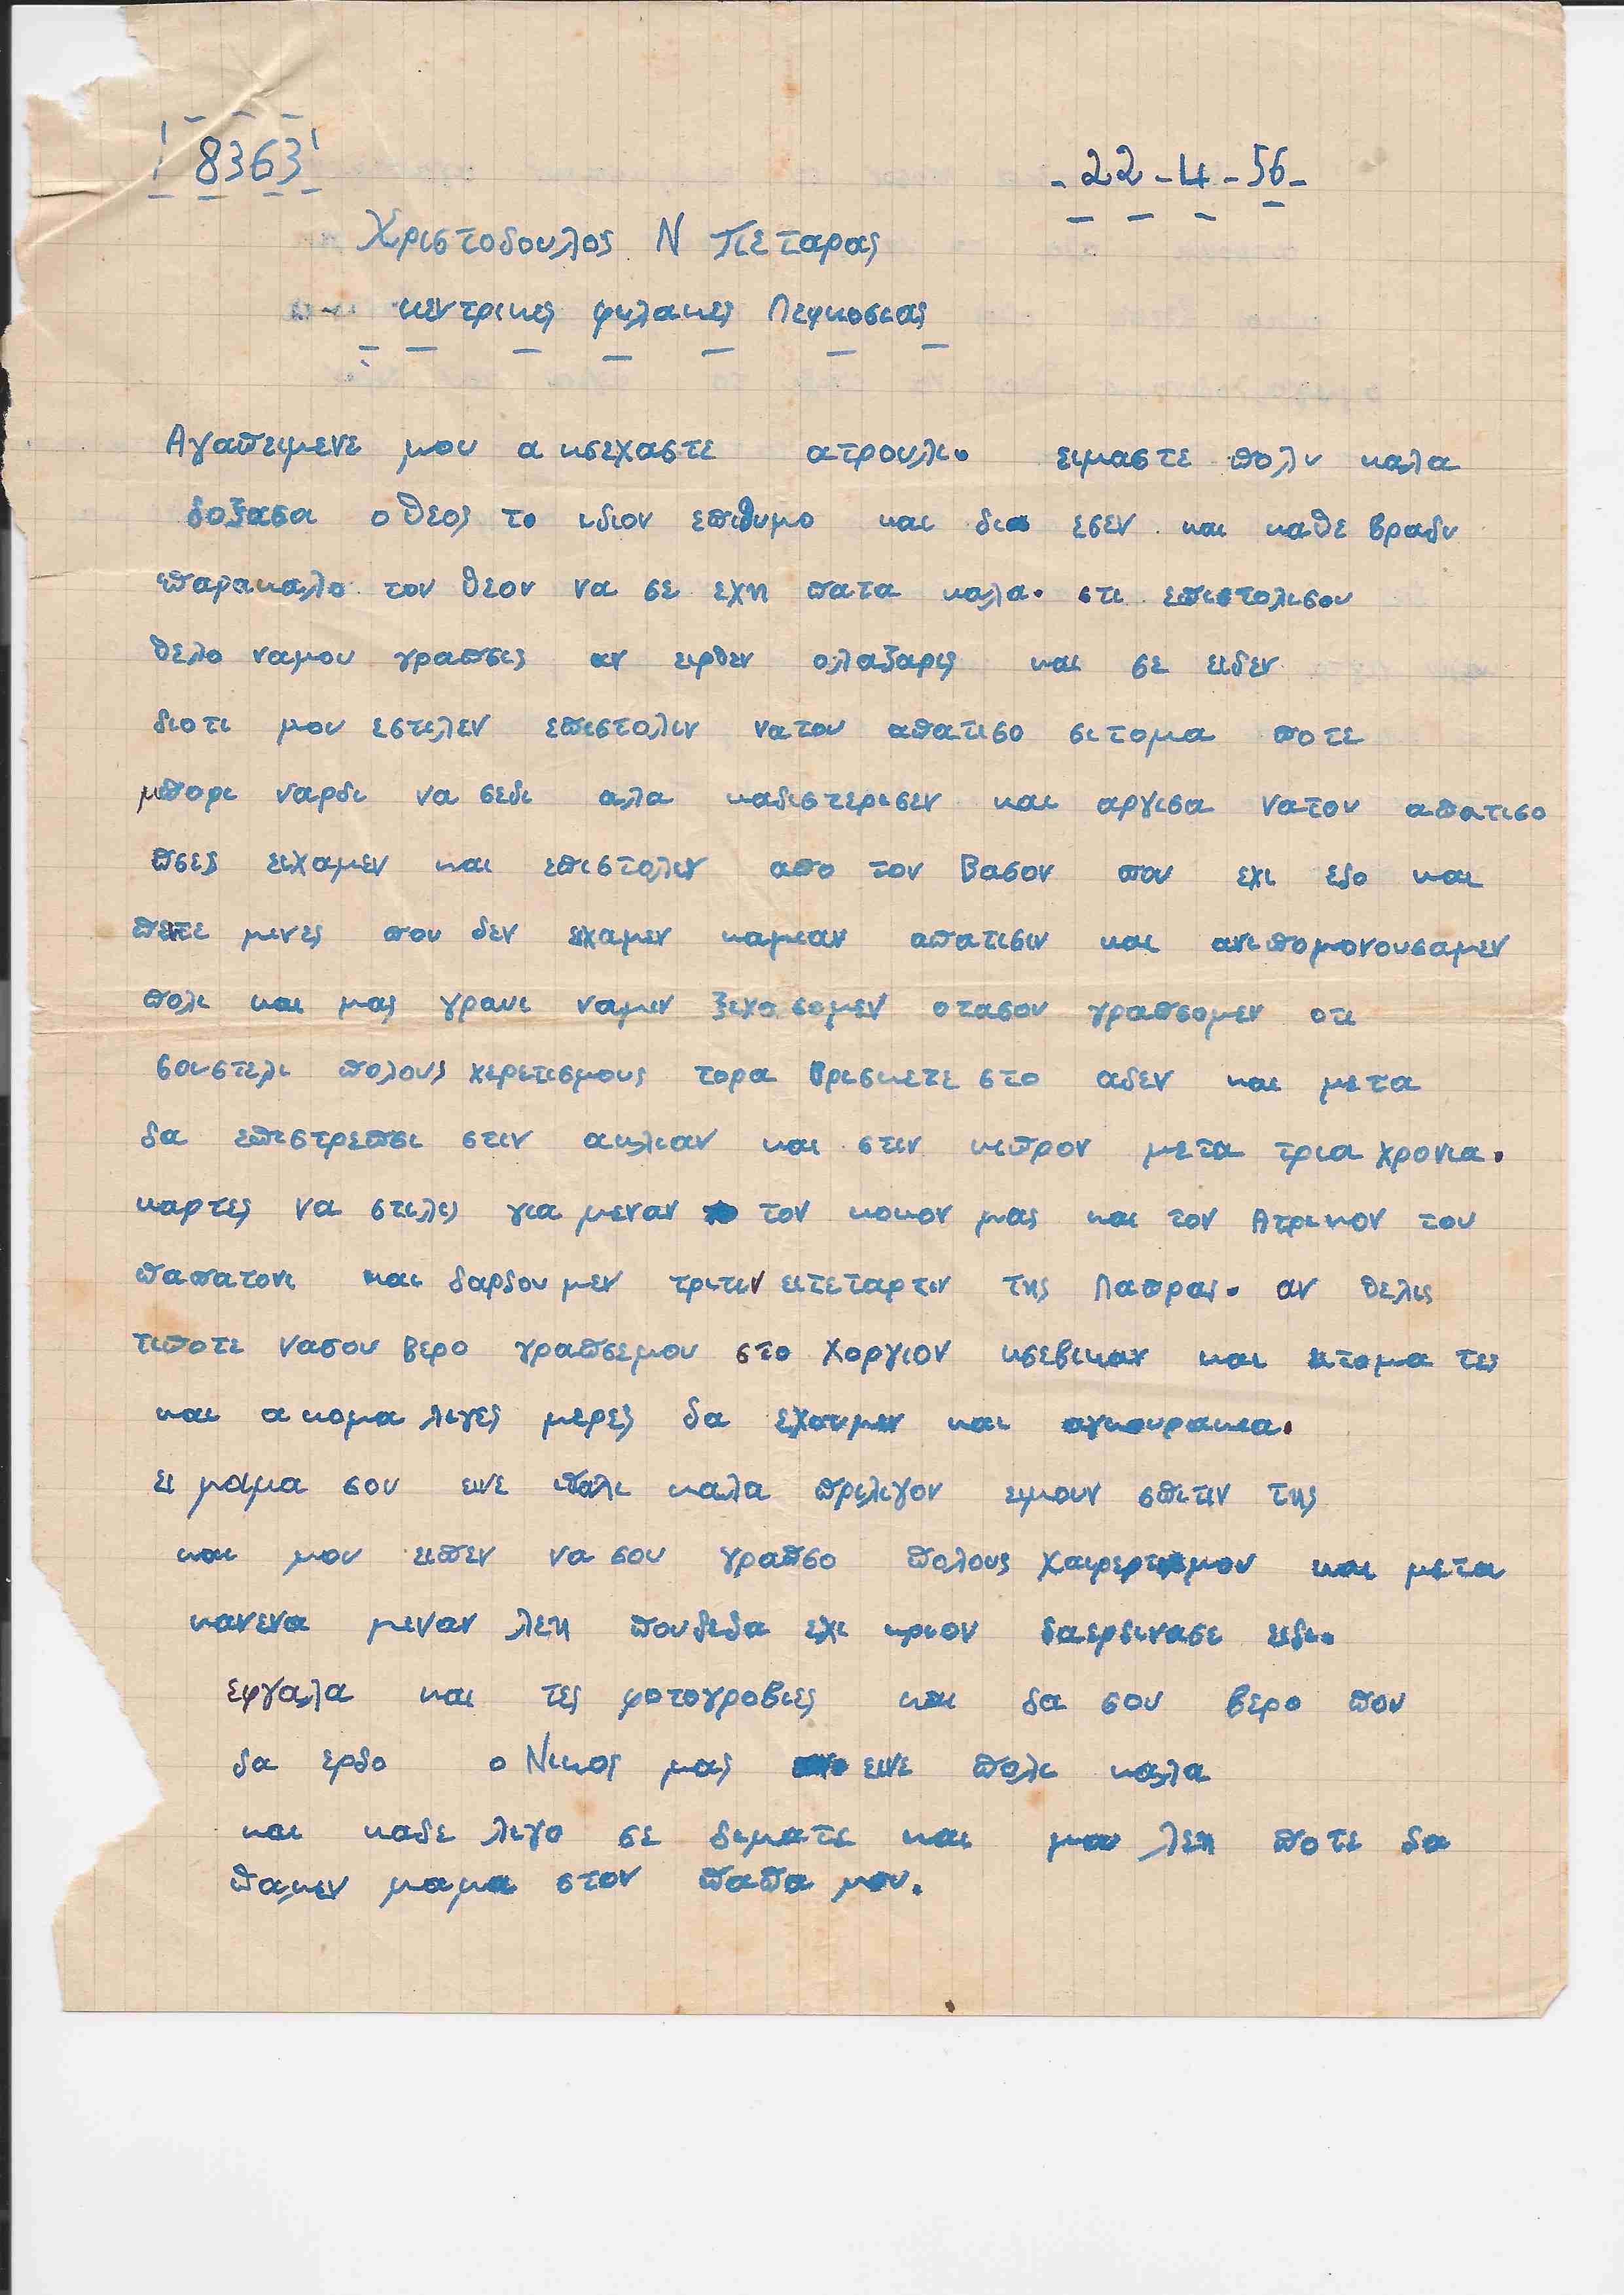 8363
- 22 - 4 - 56 -
Χριστοδουλος Ν Πεταρας
κεντρικες φυλακες Λεφκοσιας
Αγαπειμενε μου α κσεχαστε ατρουλι. ειμαστε πολυ καλα
δοξασι ο θεος το ιδιον επιθυμο και δια εσεν και καθε βραδυ
παρακαλο τον θεον να σε εχη πατα καλα. στι επιστολισου
θελο ναμου γραπσις αν ειρθεν ολαζαρις και σε ειδεν
διοτι μου εστιλεν επιστολιν νατου απατισο σιτομα ποτε
μπορι ναρδι να σεδι αλα καδιστερισεν και αργισα νατον απατισο
πσες ειχαμεν και επιστολιν απο τον Βασον που εχι εδο και
πεντε μινες που δεν ειχαμεν καμιαν απατισιν και ανιπομονουσαμεν
πολι και μας γραψι ναμιν ξιχασομεν οτασου γραπσομεν οτι
σουστελι πολους χερετισμους τορα βρισκετε στο αδεν και μετα
δα επιστρεπσι στιν αγλιαν και στιν κιπρον μετα τρια χρονια.
καρτες να στιλις για μεναν τον κοκον μας και τον Ατρικον του
παπατονι και δαρδουμεν τριτιν ειτεταρτιν της Λαπρας. αν θελις
τιποτε νασου βερο γραπσεμου στο χοργιον κσεβικαν και ατομα τες
και α κομα λιγες μερες δα εχουμεν και αγκουρακια.
ει μαμα σου εινε πολι καλα πριλιγον ειμουν σπιτιν της
και μου ειπεν να σου γραπσο πολους και μετα
κανενα μιναν λεη πουδεδα εχι κριον δαερδινασε ειδι.
εφγαλα και τες φοτογραβιες και δα σου βερο που
δα ερδο ο Νικος μας εινε πολι καλα
και καδε λιγο σε διματε και μου λεη ποτε δα
παμεν μαμα στον παπα μου.